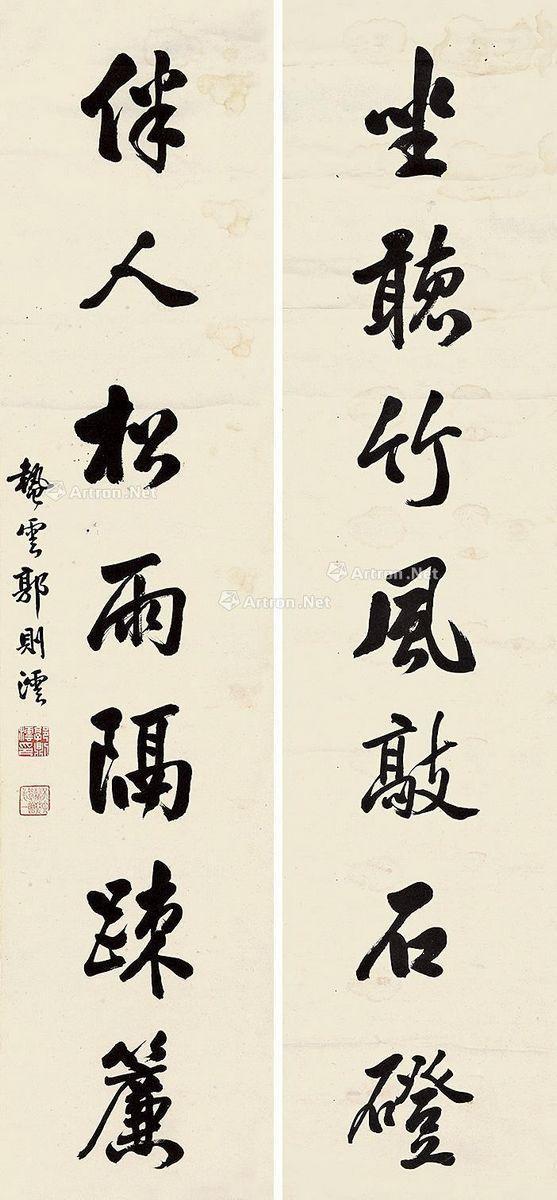 坐聽竹風敲石磴
伴人松雨隔疎簾
蟄雲郭則澐
Artron.Net
Artron.Net
Artron.Net
Artron.Net